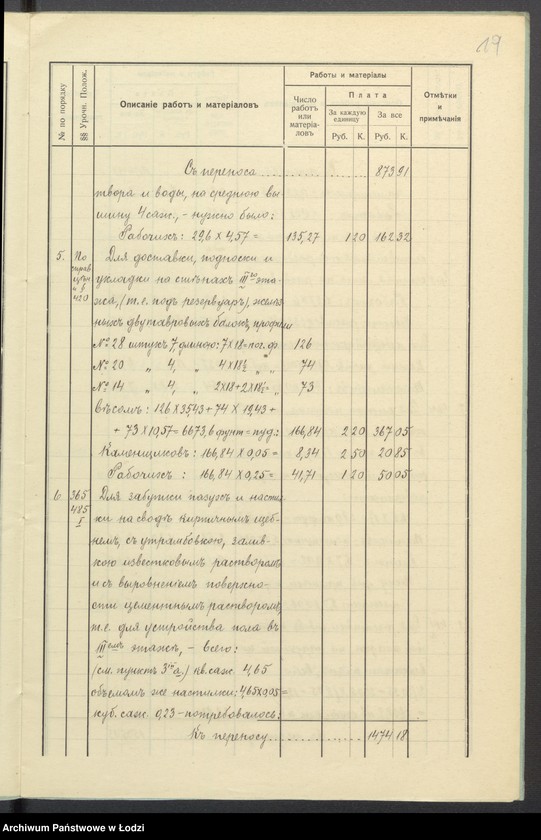 19
№ по порядку
§§ Урочн. Полож.
Описаніе работъ и матеріаловъ
Работы и матеріалы
Число работъ или матеріа-ловъ
Плата
За каждую единицу
За все
Руб. К. Руб. К.
Отмѣтки и примѣчанія
Съ переноса 873 91
твора и воды, на среднюю вы-
шину 4 саж., - нужно было:
Рабочихъ: 29,6 х 4,57 = 135,27 1 20 162 32
5. По Для доставки, подноски и
укладки на стѣнахъ III го эта-
жа, (т.е. подъ резервуаръ), желѣз-
420
ныхъ двутавровыхъ балокъ, профили
№ 28 штукъ 7, длиною: 7х18= пог. ф. 126
№ 20 „ 4, „ 4х18½ „ „ 74
№ 14 „ 4, „ 2х18+2х18½= „ 73
вѣсомъ: 126 х 35,43 + 74 х 19,43 +
+ 73 х 10,57 = 6673,6 фунт = пуд.: 166,84 2 20 367 05
Каменщиковъ: 166,84 х 0,05 = 8,34 2 50 20 85
Рабочихъ: 166,84 х 0,25 = 41,71 1 20 50 05
6. 365 Для забутки пазухъ и настил-
485 ки на сводъ кирпичнымъ щеб-
I немъ, съ утрамбовкою, залив-
кою известковымъ растворомъ
и съ выровненіемъ поверхно-
сти цементнымъ растворомъ,
т.е. для устройства пола въ
III емъ этажѣ, - всего:
(см. пунктъ 3 го а.) кв. саж. 4,65
объемомъ же настилки: 4,65х0,05=
куб. саж. 0,23 - потребовалось:
Къ переносу 1474 18
Archiwum Państwowe w Łodzi